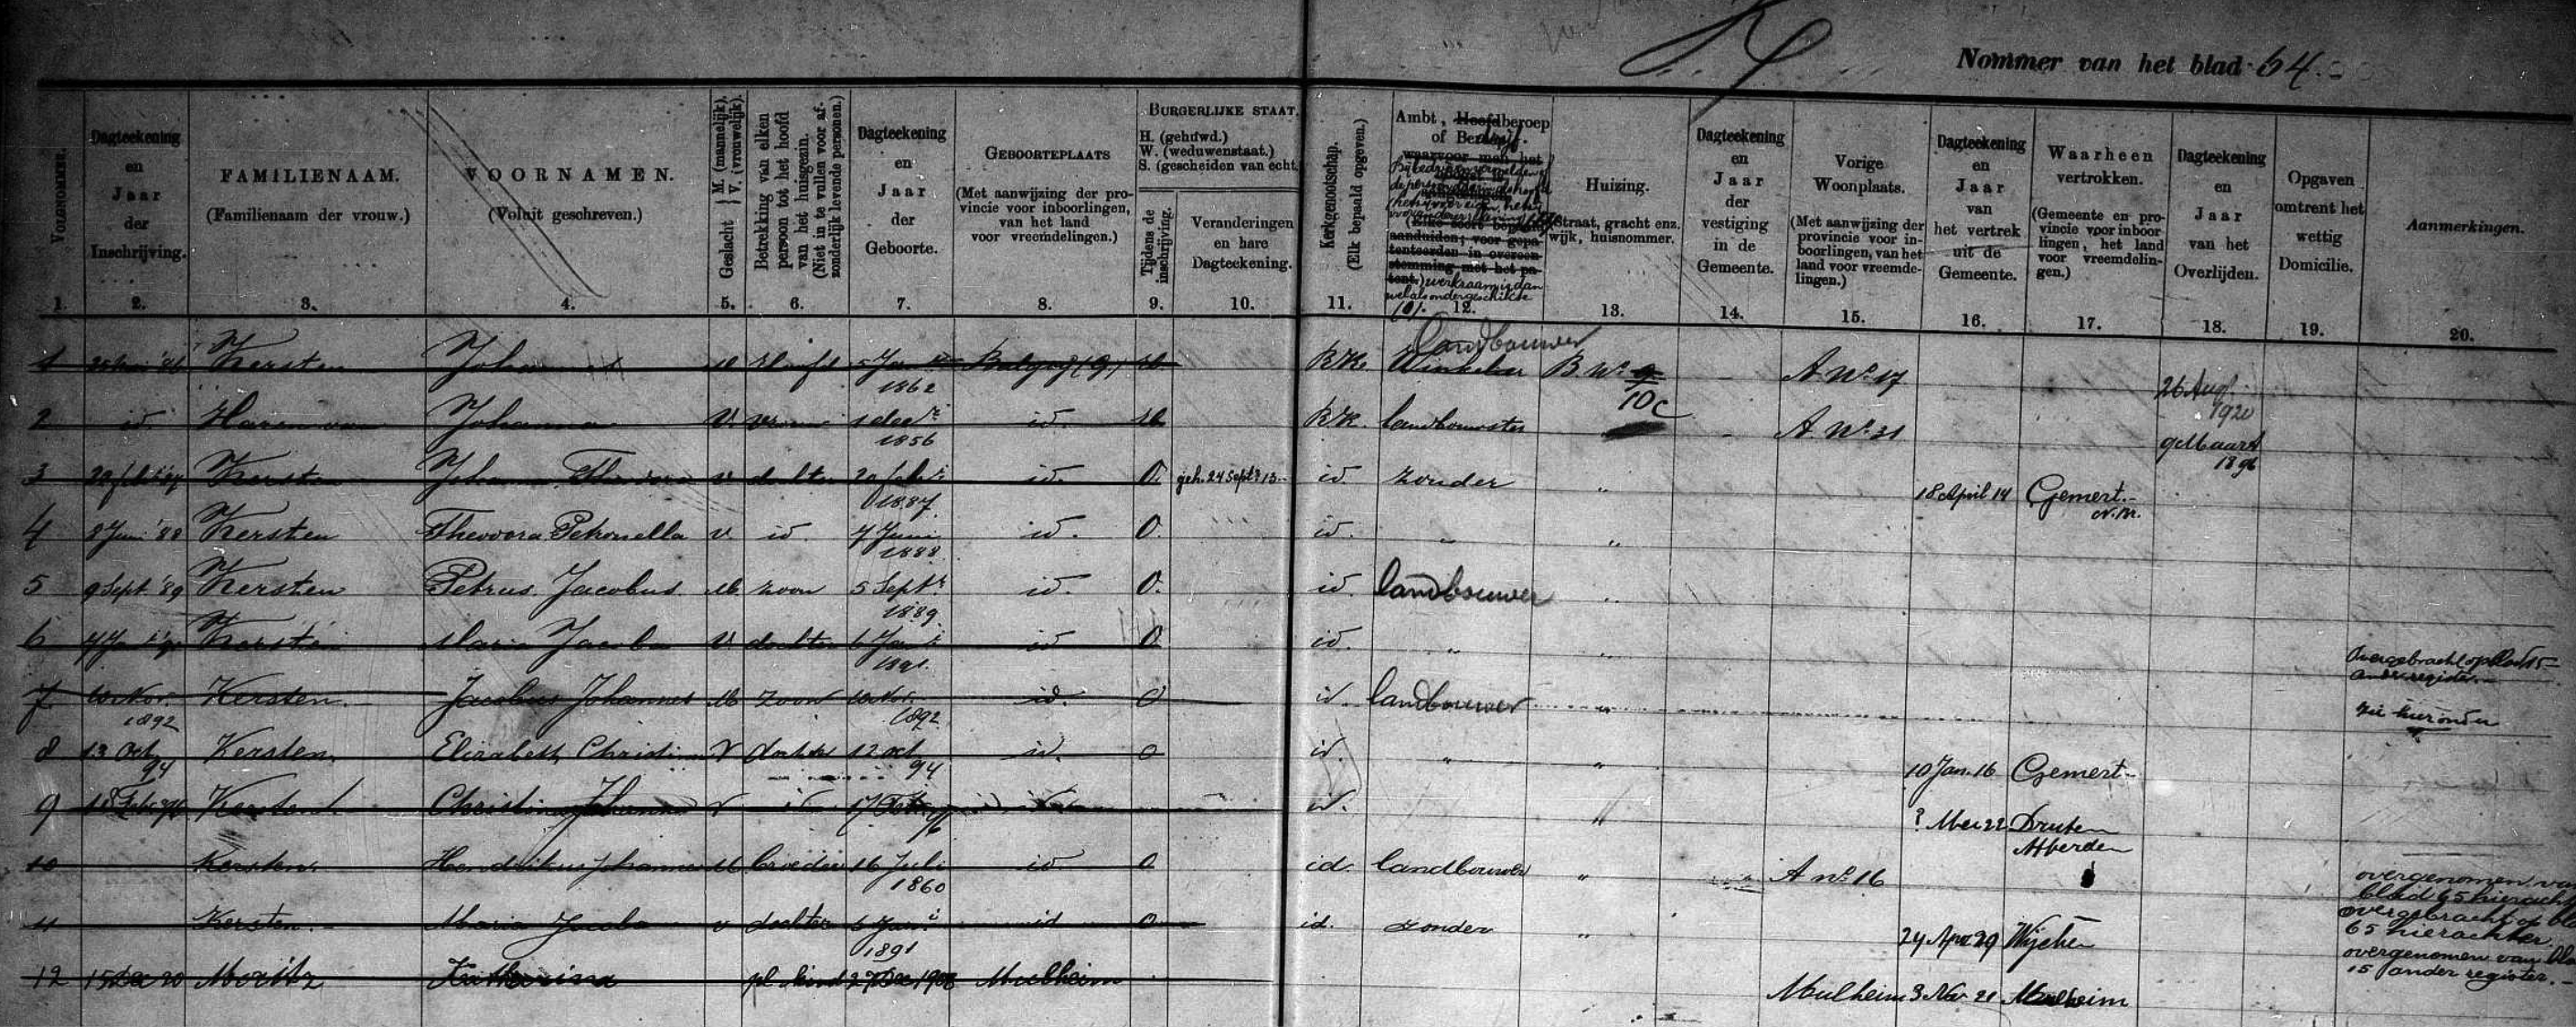 K
Nommer van het blad 64.
VOLGNOMMER.
1.
Dagteekening
en
Jaar
der
Inschrijving.
2.
FAMILIENAAM.
(Familienaam der vrouw.)
3.
VOORNAMEN.
(Voluit geschreven.)
4.
Geslacht { M. (mannelijk). V. (vrouwelijk).
5.
Betrekking van elken
persoon tot het hoofd
van het huisgezin.
(Niet in te vullen voor af-
zonderlijk levende personen.)
6.
Dagteekening
en
Jaar
der
Geboorte.
7.
GEBOORTEPLAATS
(Met aanwijzing der pro-
vincie voor inboorlingen,
van het land
voor vreemdelingen.)
8.
BURGERLIJKE STAAT.
H. (gehuwd.)
W. (weduwenstaat.)
S. (gescheiden van echt.)
Tijdens de
inschrijving.
9.
Veranderingen
en hare
Dagteekening.
10.
Kerkgenootschap.
(Elk bepaald opgeven.)
11.
Ambt, Hoofdberoep
of Bedrijf.
waarvoor men het
aanduiden; voor gepa-
tenteerden in overeen-
stemming met het pa-
tent.) werkzaam is dan
wel als ondergeschikte
(o).
12.
Huizing.
Straat, gracht enz.
wijk, huisnommer.
13.
Dagteekening
en
Jaar
der
vestiging
in de
Gemeente.
14.
Vorige
Woonplaats.
(Met aanwijzing der
provincie voor in-
boorlingen, van het
land voor vreemde-
lingen.)
15.
Dagteekening
en
Jaar
van
het vertrek
uit de
Gemeente.
16.
Waarheen
vertrokken.
(Gemeente en pro-
vincie voor inboor
lingen, het land
voor vreemdelin-
gen.)
17.
Dagteekening
en
Jaar
van het
Overlijden.
18.
Opgaven
omtrent het
wettig
Domicilie.
19.
Aanmerkingen.
20.
landbouwer
1 Kersten Johannes M Hoofd 5 Jan 1862 Balgoij (G) H RK Winkelier B No 9 10c A. No 17 26 Aug. 1920
2 id. Haren van Johanna V. vrouw 1 dec 1856 id. H RK. landbouwster A. No 31 9 Maart 1896
3 Kersten Johanna Theodora V dochter 20 feb 1887 id. O. geh. 24 Sept 13 id zonder " 18 April 14 Gemert. N.Br.
4 8 Juni '88 Kersten Theodora Petronella V. id. 7 Juni 1888 id. O. id. " "
5 9 Sept '89 Kersten Petrus Jacobus M zoon 5 Sept 1889. id. O. id. landbouwer "
6 Kersten Maria Jacoba V dochter 6 Jan 1891. id O id. " " Overgebracht op blad 15 ander register.
7 10 Nov. 1892 Kersten. Jacobus Johannes M zoon 10 Nov. 1892 id. O id. landbouwer " zie hieronder
8 13 Oct 94 Kersten Elisabeth Christina V dochter 12 oct 94 id. O id. " " 10 Jan. 16 Gemert
9 18 Feb 96 Kersten Christina Johanna V id 17 Feb 96 id id. " ? Mei 22 Druten Afferden
10 Kersten. Hendrikus Johannes M broeder 16 Juli 1860 id O id. landbouwer " " A no 16 overgenomen van blad 65 hierachter overgebracht op blad 65 hierachter.
11 Kersten. Maria Jacoba V dochter 6 Jan 1891 id O id. zonder " 24 Apr 29 Wijchen overgenomen van blad 15 ander register.
12 15 Dec 20 Moritz Katharina pl. kind 27 Dec 1908 Mulheim Mulheim 3 Nov 21 Mulheim